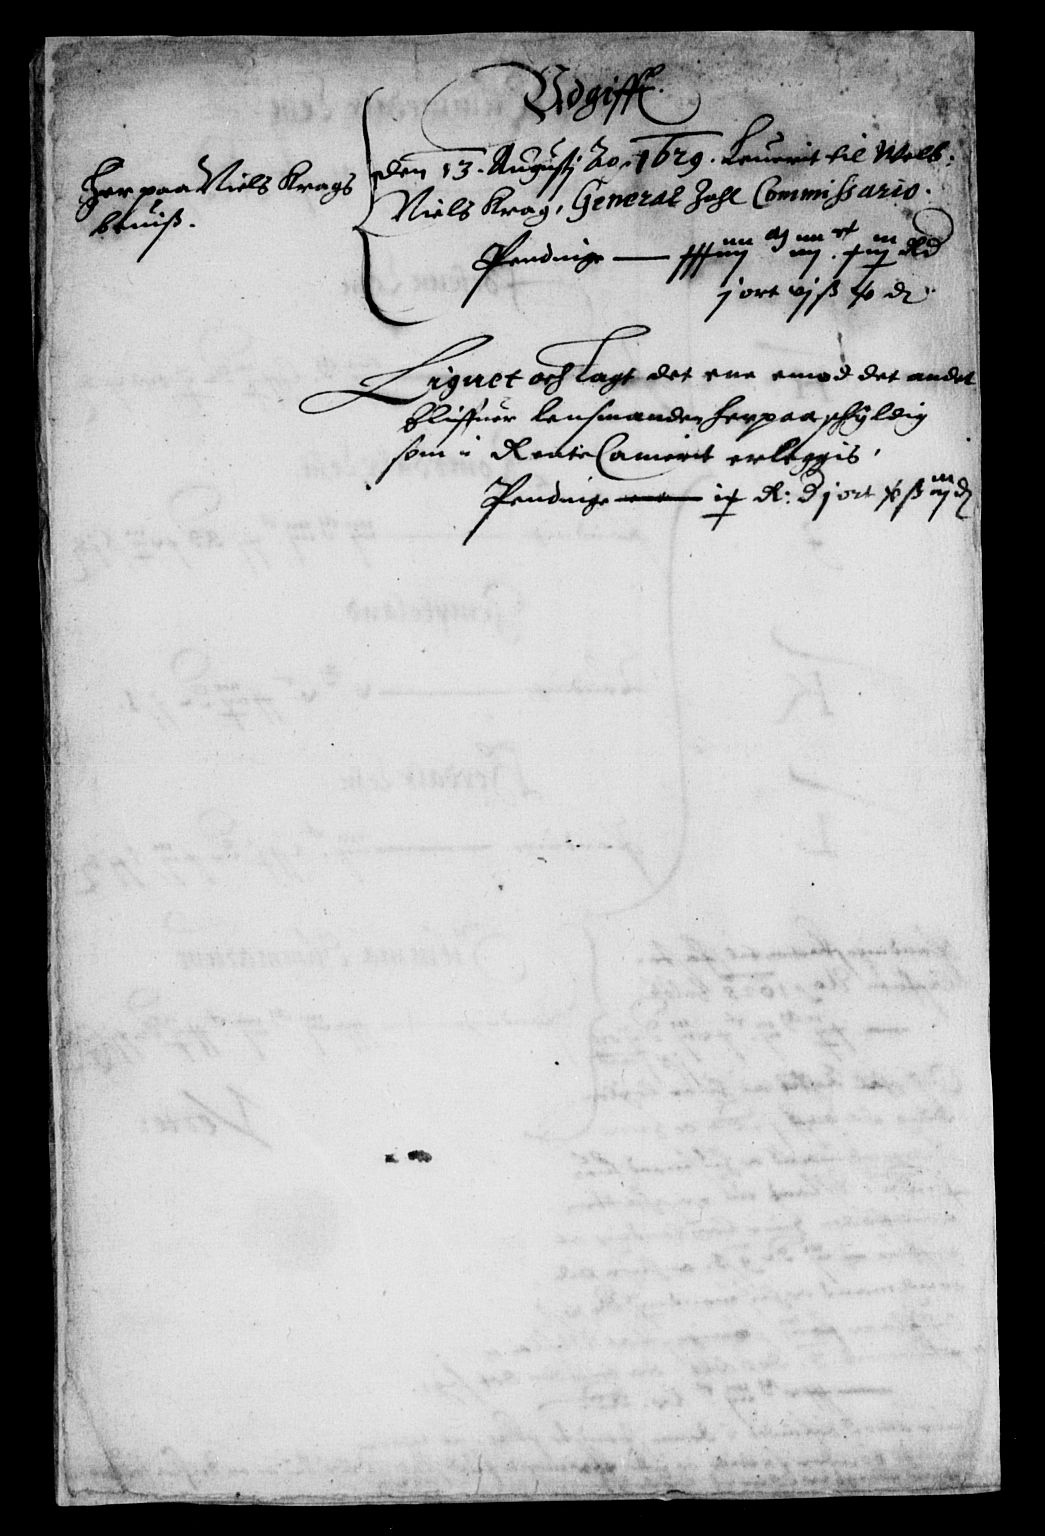 Udgifft.
Herpaa Niels Krags
beuiß.
den 13. Augustj Ao. 1629. Leuerit til Welb:
Niels Krag, General Zahl Commissario.
Pendinge — Rd
j ort vjß d
Lignet och Lagt det ene emod det andet
bliffuer lensmanden herpaa schÿldig
som i RenteCamerit erleggis,
Pendinge — R: d j ort ß d